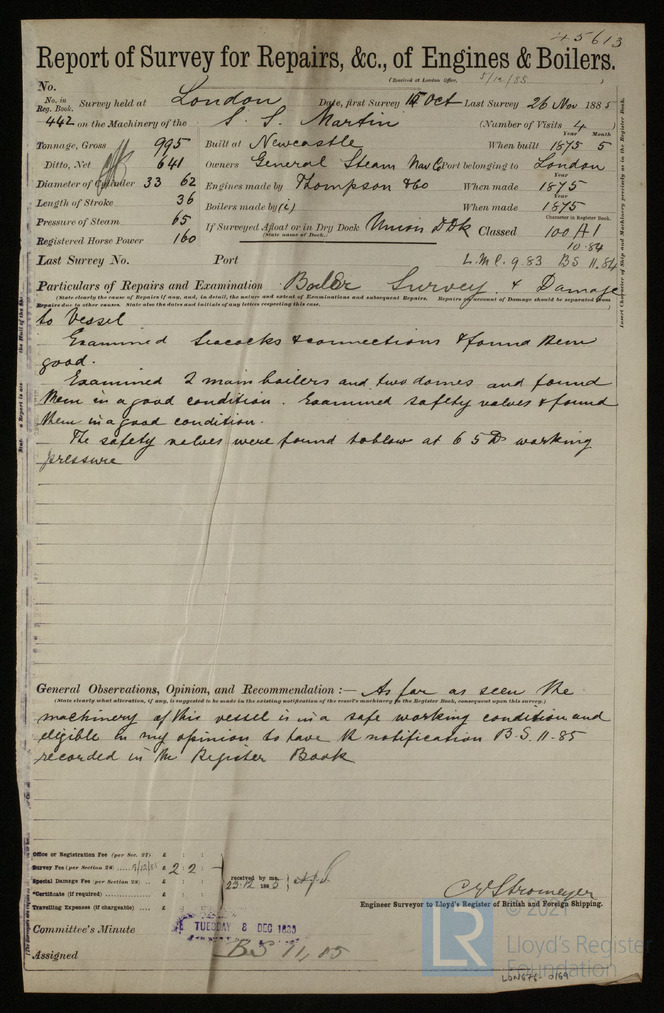 45613
Report of Survey for Repairs, &c., of Engines & Boilers.
(Received at London Office, 5/12/85 )
No.
No. in Reg. Book. Survey held at London Date, first Survey 15 Oct Last Survey 26 Nov 1885
442 on the Machinery of the S. S. Martin (Number of Visits 4 )
Tonnage, Gross 995 Built at Newcastle When built Year 1875 Month 5
Ditto, Net 641 Owners General Steam Nav Co Port belonging to London
Diameter of Cylinder 33 62 Engines made by Thompson & Co When made Year 1875
Length of Stroke 36 Boilers made by (i) When made Year 1875
Pressure of Steam 65 If Surveyed Afloat or in Dry Dock Union D Dk Classed Character in Register Book. 100 A1
(State name of Dock.) 10.84
Registered Horse Power 160
Last Survey No. Port L.M.C. 9.83 BS 11.84
Particulars of Repairs and Examination Boiler Survey & Damage
(State clearly the cause of Repairs if any, and, in detail, the nature and extent of Examinations and subsequent Repairs. Repairs on account of Damage should be separated from
Repairs due to other causes. State also the dates and initials of any letters respecting this case.
to Vessel
Examined Seacocks & connections & found them
good.
Examined 2 main boilers and two domes and found
them in a good condition. Examined safety valves & found
them in a good condition.
The safety valves were found to blow at 65 lbs working
pressure
General Observations, Opinion, and Recommendation :— As far as seen the
(State clearly what alteration, if any, is suggested to be made in the existing notification of the vessel's machinery in the Register Book, consequent upon this survey.)
machinery of this vessel is in a safe working condition and
eligible in my opinion to have the notification B.S. 11.85
recorded in the Register Book
Office or Registration Fee (per Sec. 27) £ : :
Survey Fee (per Section 28) £ 2 : 2 :
Special Damage Fee (per Section 28) £ : :
*Certificate (if required) £ : :
Travelling Expenses (if chargeable) £ : :
received by me,
23.12 1885
C E Stromeyer
Engineer Surveyor to Lloyd's Register of British and Foreign Shipping.
Committee's Minute TUESDAY 8 DEC 1885
Assigned BS 11,85
© 2021
LR
Lloyd's Register
Foundation
LON676-0169
Insert Character of Ship and Machinery precisely as in the Register Book.